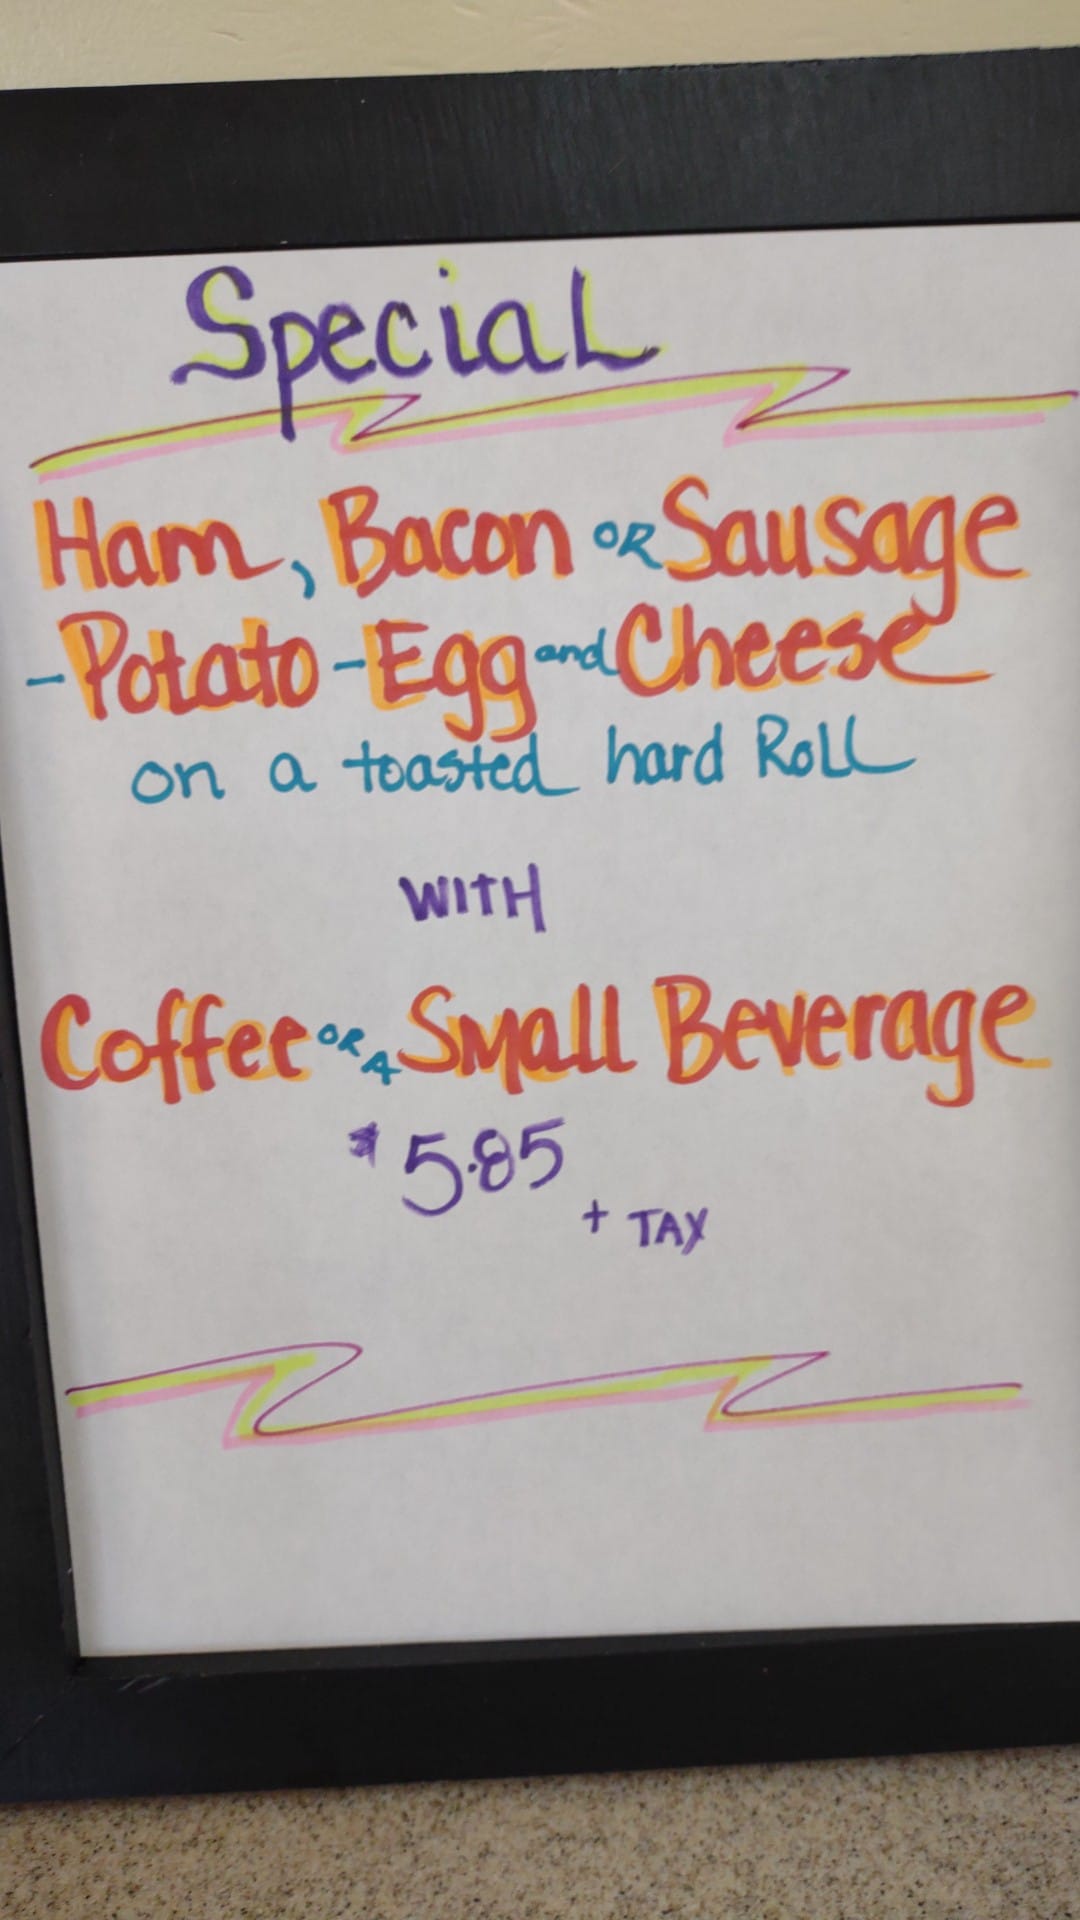 Special
Ham, Bacon OR Sausage
-Potato-Egg and Cheese
on a toasted hard Roll
WITH
Coffee OR A Small Beverage
$5.85
+ TAX